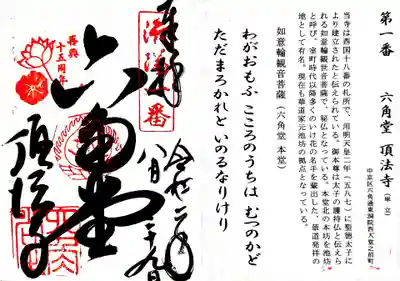 第一番　六角堂　頂法寺（単立）
中京区六角通東洞院西入堂之前町
当寺は西国十八番の札所で、用明天皇二年（五八七）に聖徳太子に
より建立されたと伝えられている。御本尊は太子の護持仏と伝えら
れる如意輪観世音菩薩で、秘仏となっている。本堂北の本坊を池坊
と呼び、室町時代以降多くのいけ花の名手を輩出した、華道発祥の
地として有名。現在も華道家元池坊の拠点となっている。
如意輪観音菩薩（六角堂　本堂）
わがおもふ　こころのうちは　むつのかど
ただまろかれと　いのるなりけり
奉拝
洛陽第一番
令和二年
八月二十九日
六角堂
頂法寺
再興
十五周年